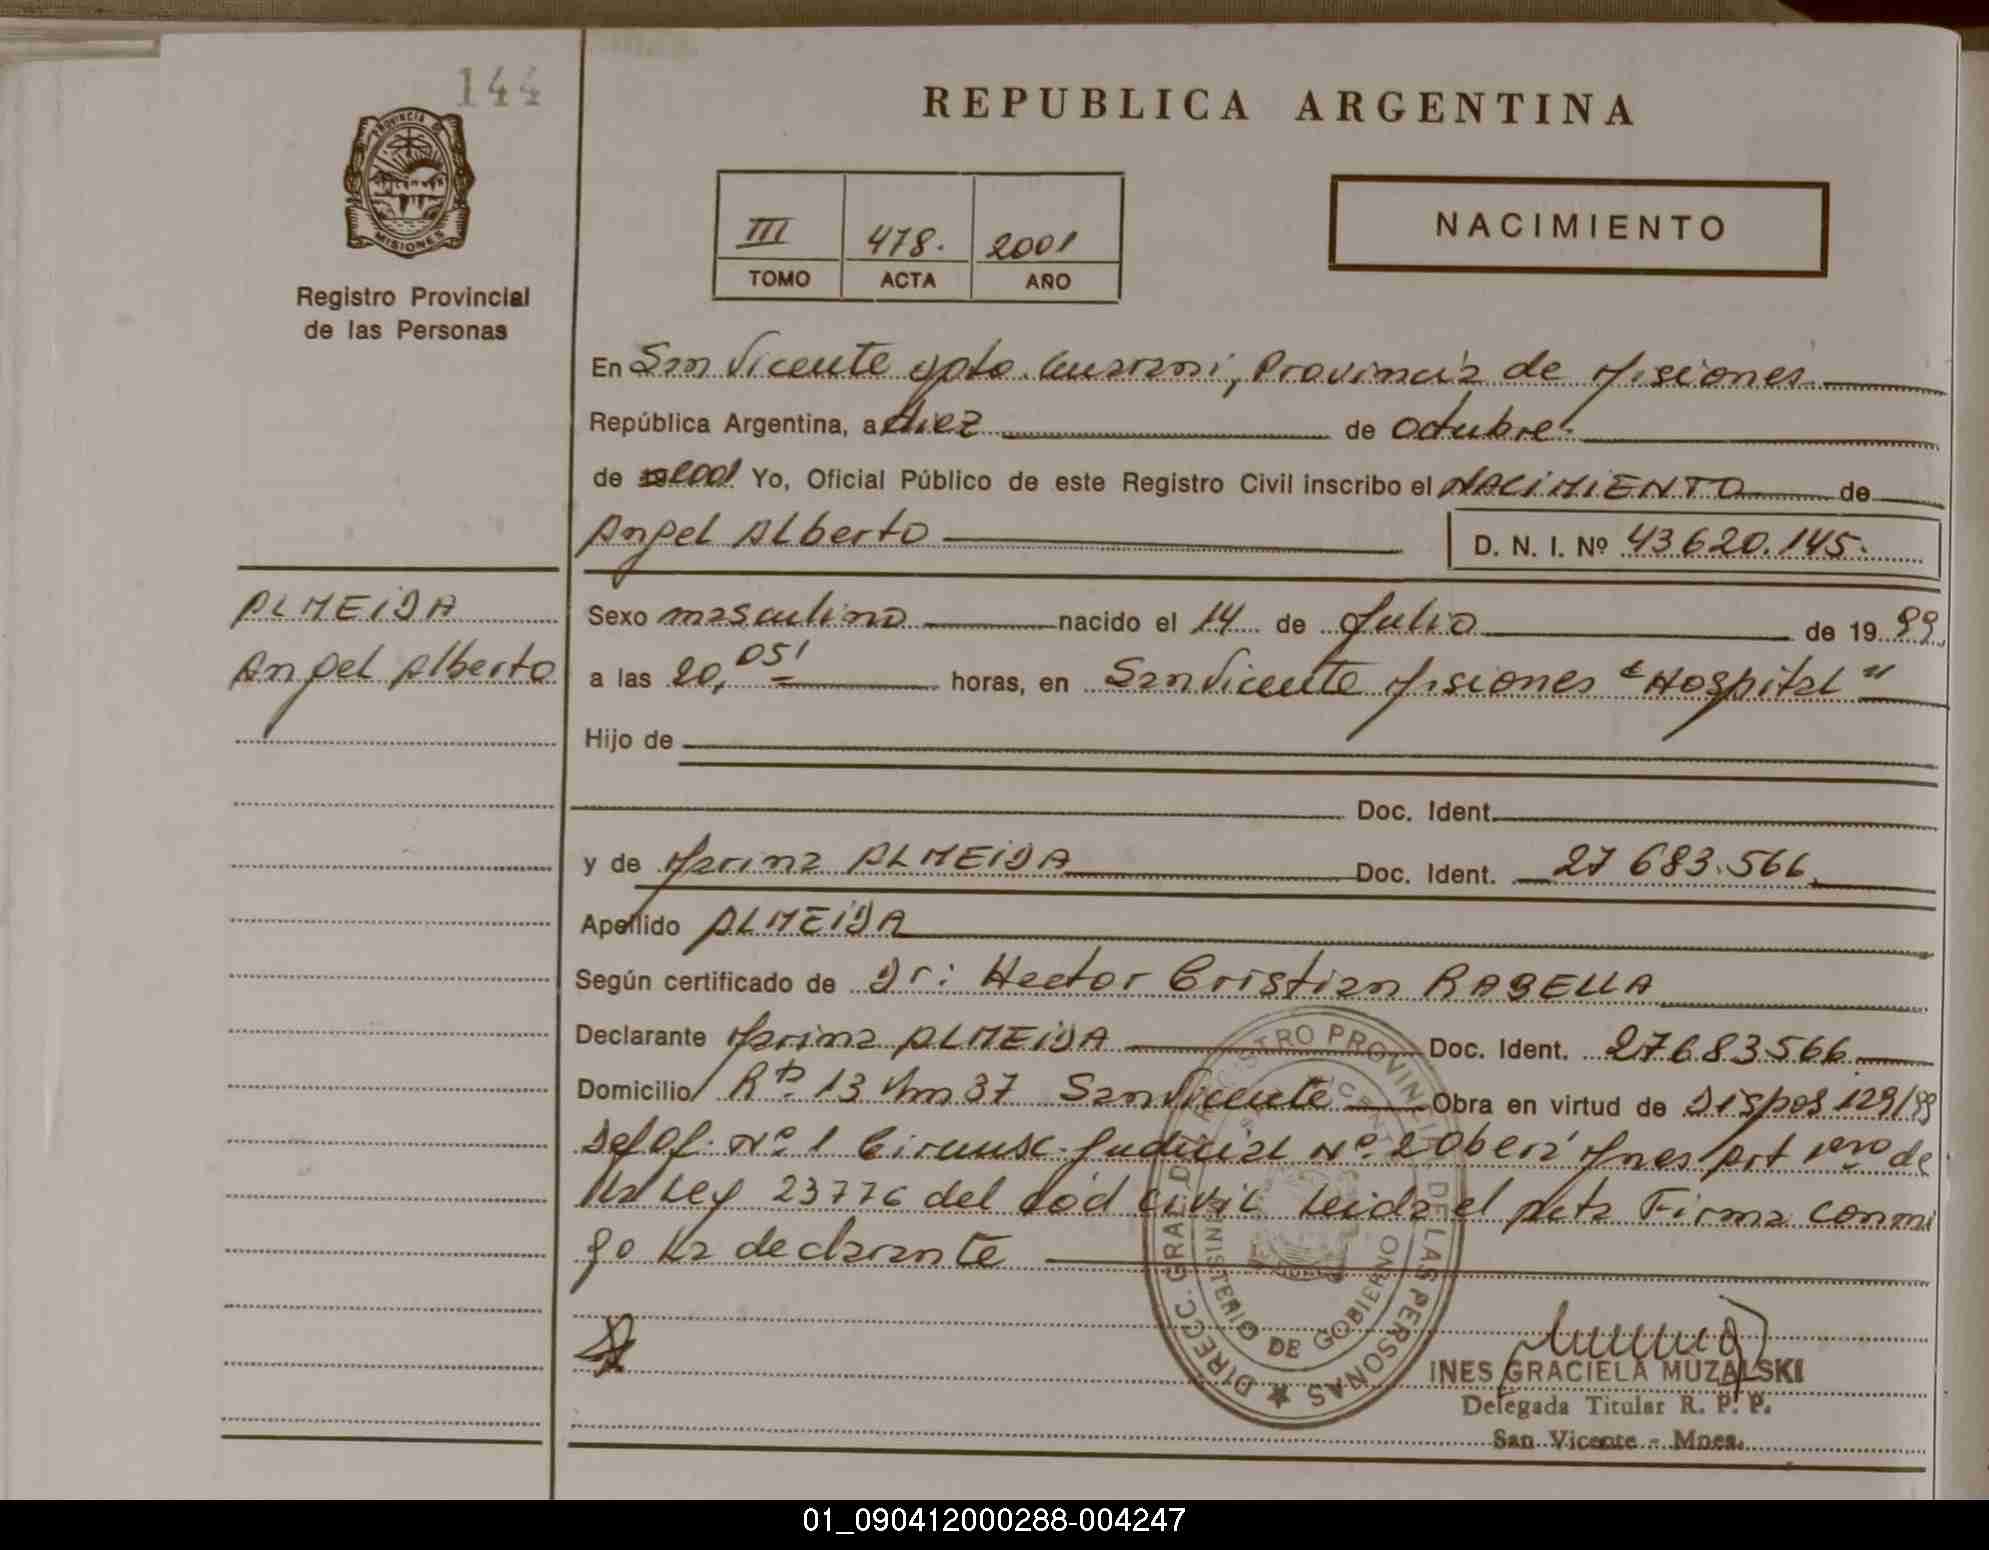 144
REPUBLICA ARGENTINA
PROVINCIA DE
MISIONES
Registro Provincial
de las Personas
III 478. 2001
TOMO ACTA AÑO
NACIMIENTO
En San Vicente Dpto. Guarani, Provincia de Misiones
República Argentina, a diez de Octubre
de 19 2001 Yo, Oficial Público de este Registro Civil inscribo el NACIMIENTO de
Angel Alberto D. N. I. Nº 43620.145.
ALMEIDA
Angel Alberto
Sexo masculino nacido el 14 de Julio de 19 99
a las 20,05' horas, en San Vicente Misiones "Hospital"
Hijo de
Doc. Ident.
y de Marina ALMEIDA Doc. Ident. 27683.566
Apellido ALMEIDA
Según certificado de Dr: Hector Cristian RABELLA
Declarante Marina ALMEIDA Doc. Ident. 27683566
Domicilio Rta 13 Km 37 San Vicente Obra en virtud de Dispos 129/99
Def Of. Nº 1 Circunsc. Judicial Nº 2 Oberá Mnes Art 1ero de
la Ley 23776 del Cód Civil Leida el acta Firma conmi
go la declarante
DIRECC. GRAL. DEL REGISTRO PROVINCIAL DE LAS PERSONAS
MINISTERIO DE GOBIERNO
SAN VICENTE
INES GRACIELA MUZALSKI
Delegada Titular R. P. P.
San Vicente - Mnes.
01_090412000288-004247